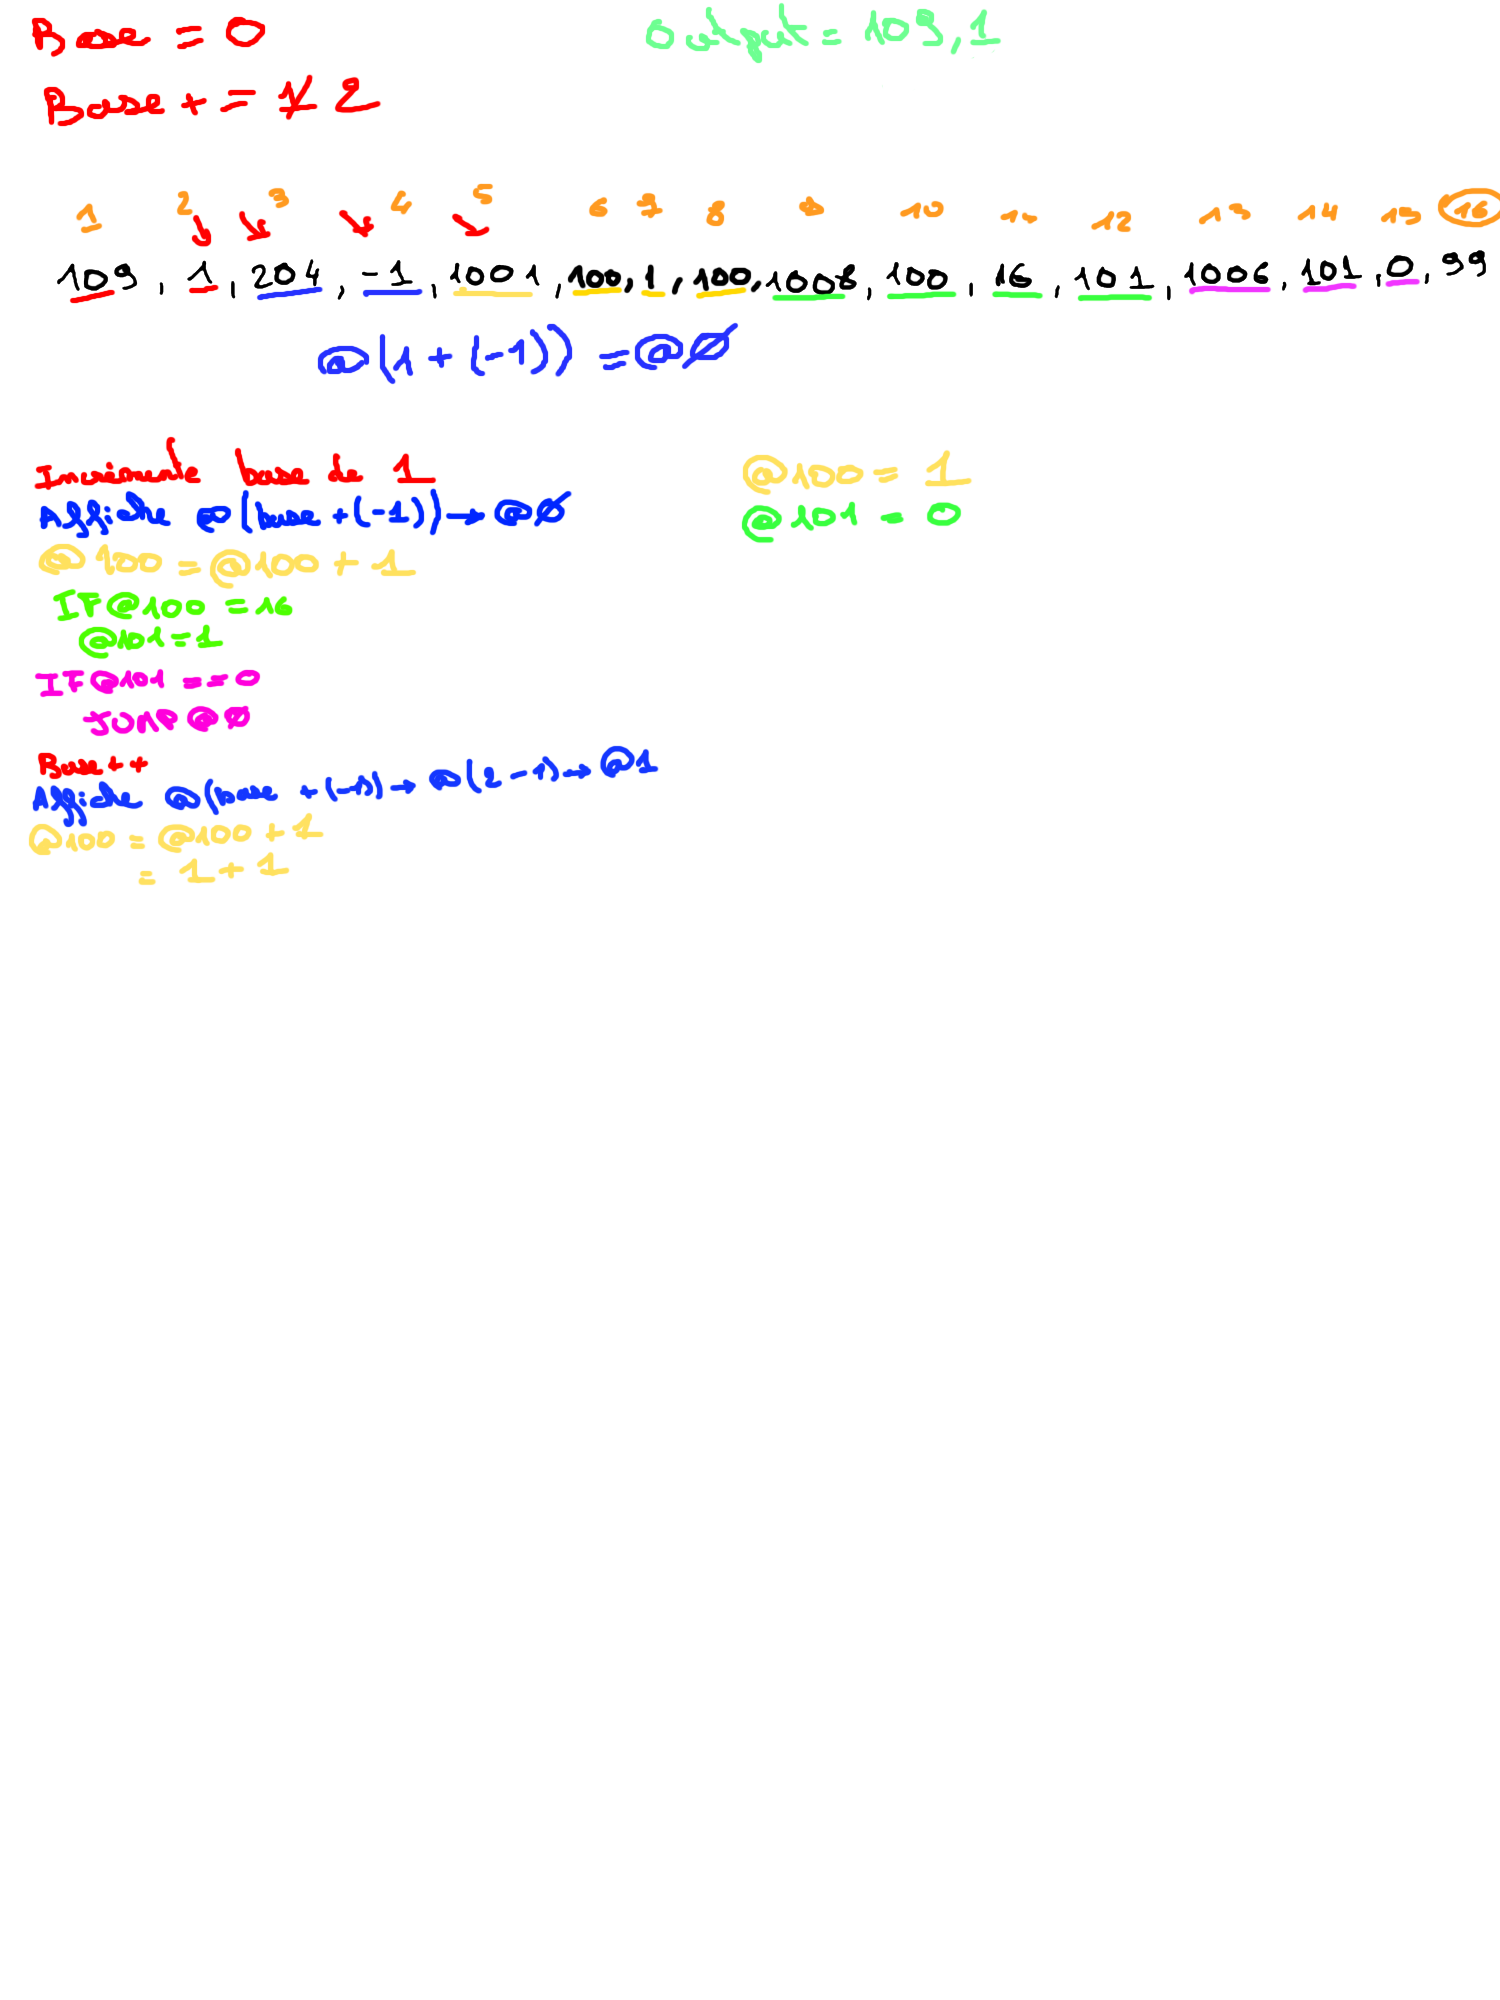 Base = 0
Output = 109, 1
Base + = 1 2
1 2 3 4 5 6 7 8 9 10 11 12 13 14 15 16
109, 1, 204, -1, 1001, 100, 1, 100, 1008, 100, 16, 101, 1006, 101, 0, 99
@(1 + (-1)) = @Ø
Incrémente base de 1
@100 = 1
Affiche @(base + (-1)) → @Ø
@101 = 0
@100 = @100 + 1
IF @100 = 16
@101 = 1
IF @101 == 0
JUMP @Ø
Base++
Affiche @(base + (-1)) → @(2 - 1) → @1
@100 = @100 + 1
= 1 + 1